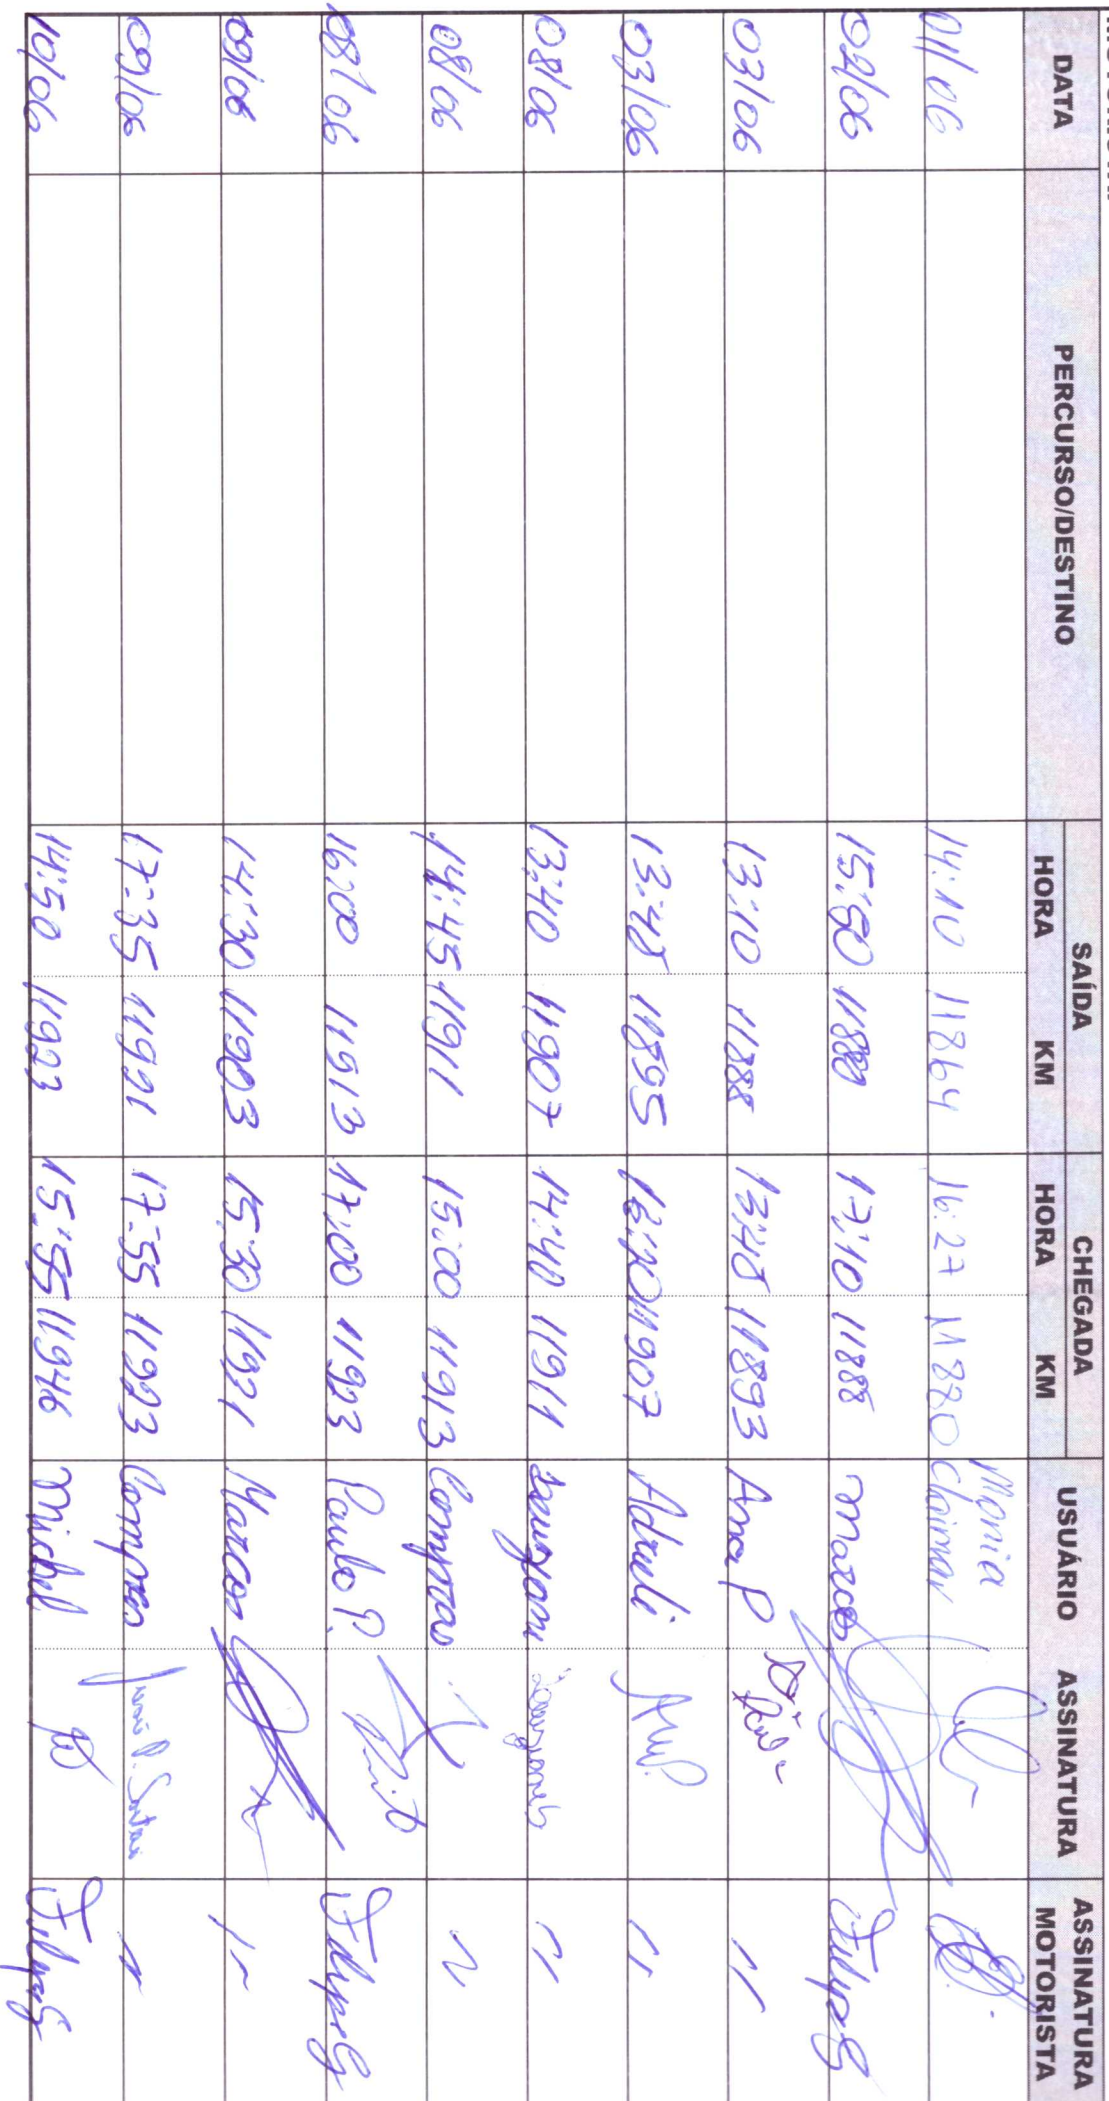 DATA PERCURSO/DESTINO SAÍDA CHEGADA USUÁRIO ASSINATURA ASSINATURA MOTORISTA
HORA KM HORA KM
01/06 14:10 11864 16:27 11880 Maria
02/06 15:50 11880 17:10 11888 Marcos
03/06 13:10 11888 13:48 11893 Ana P
03/06 13:48 11895 16:20 11907 Adrieli
08/06 13:40 11907 14:40 11911
08/06 14:45 11911 15:00 11913 Compras
08/06 16:00 11913 17:00 11923 Paulo P.
09/06 14:30 11903 15:30 11921 Marcos
09/06 17:35 11921 17:55 11923 Compras
10/06 14:50 11923 15:55 11946 Michel